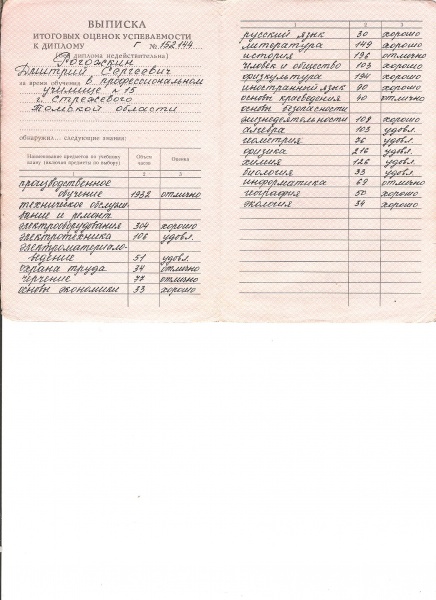 ВЫПИСКА
ИТОГОВЫХ ОЦЕНОК УСПЕВАЕМОСТИ
К ДИПЛОМУ Г № 152144
диплома недействительна)
Рогожкин
Дмитрий Сергеевич
за время обучения в профессиональном
училище №15
г. Стрежевого
Томской области
обнаружил... следующие знания:
Наименование предметов по учебному плану (включая предметы по выбору) Объем часов Оценка
2 3
производственное
обучение 1932 отлично
техническое обслужи
вание и ремонт
электрооборудования 304 хорошо
электротехника 106 удовл.
электроматериало-
ведение 51 удовл.
охрана труда 34 отлично
черчение 77 отлично
основы экономики 33 хорошо
1 2 3
русский язык 30 хорошо
литература 149 хорошо
история 136 отлично
человек и общество 103 хорошо
физкультура 194 хорошо
иностранный язык 90 хорошо
основы краеведения 40 отлично
основы безопасности
жизнедеятельности 109 хорошо
алгебра 103 удовл.
геометрия 76 удовл.
физика 216 удовл.
химия 126 удовл.
биология 33 удовл.
информатика 69 отлично
география 50 хорошо
экология 34 хорошо